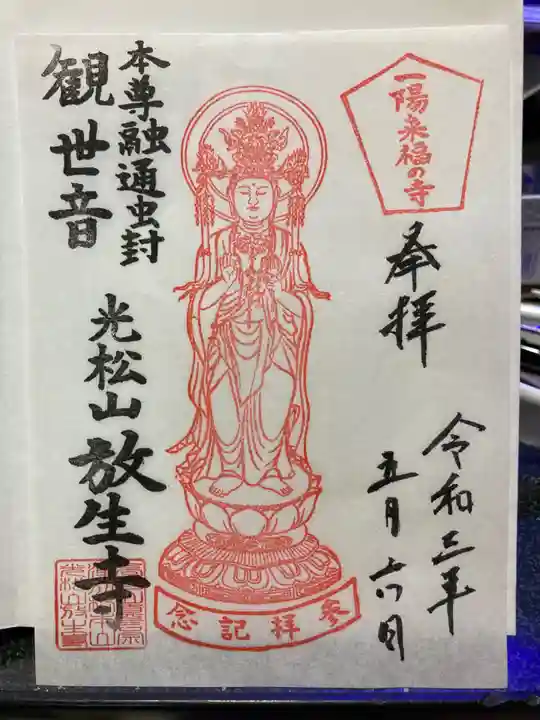 一陽来福の寺
奉拝
令和三年
五月六日
本尊融通虫封
観世音
光松山放生寺
参拝記念